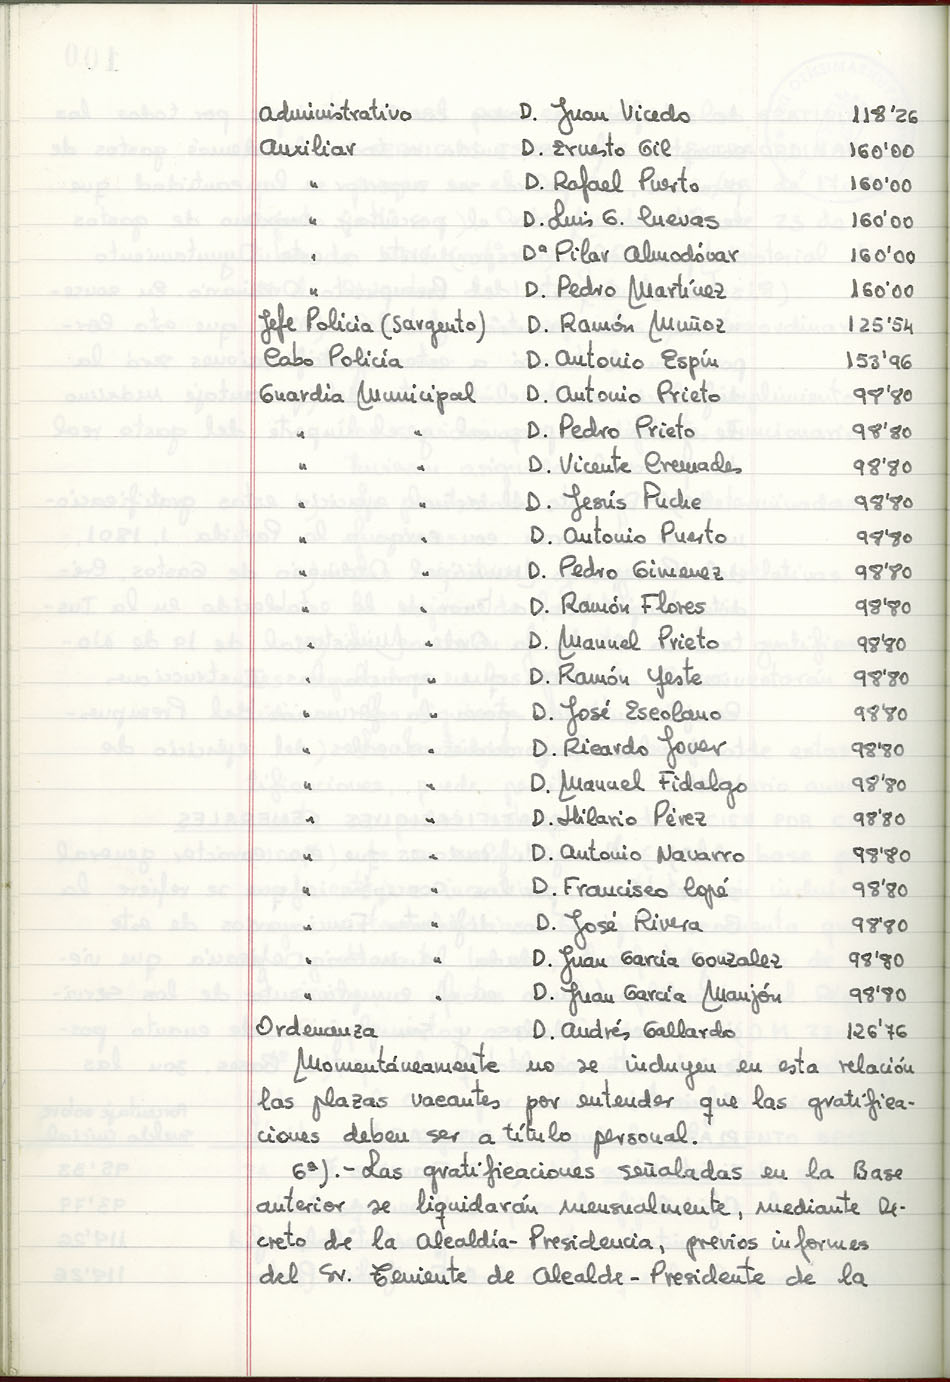 Administrativo D. Juan Vicedo 118'26
Auxiliar D. Ernesto Gil 160'00
" D. Rafael Puerto 160'00
" D. Luis G. Cuevas 160'00
" Dª Pilar Almodóvar 160'00
" D. Pedro Martínez 160'00
Jefe Policia (Sargento) D. Ramón Muñoz 125'54
Cabo Policía D. Antonio Espín 153'96
Guardia Municipal D. Antonio Prieto 98'80
" " D. Pedro Prieto 98'80
" " D. Vicente Cremades 98'80
" " D. Jesús Puche 98'80
" " D. Antonio Puerto 98'80
" " D. Pedro Gimenez 98'80
" " D. Ramón Flores 98'80
" " D. Manuel Prieto 98'80
" " D. Ramón Yeste 98'80
" " D. José Escolano 98'80
" " D. Ricardo Jover 98'80
" " D. Manuel Fidalgo 98'80
" " D. Hilario Pérez 98'80
" " D. Antonio Navarro 98'80
" " D. Francisco Copé 98'80
" " D. José Rivera 98'80
" " D. Juan García Gonzalez 98'80
" " D. Juan García Manjón 98'80
Ordenanza D. Andrés Gallardo 126'76
Momentáneamente no se incluyen en esta relación
las plazas vacantes por entender que las gratifica-
ciones deben ser a título personal.
6ª).- Las gratificaciones señaladas en la Base
anterior se liquidarán mensualmente, mediante De-
creto de la Alcaldía-Presidencia, previos informes
del Sr. Teniente de Alcalde-Presidente de la